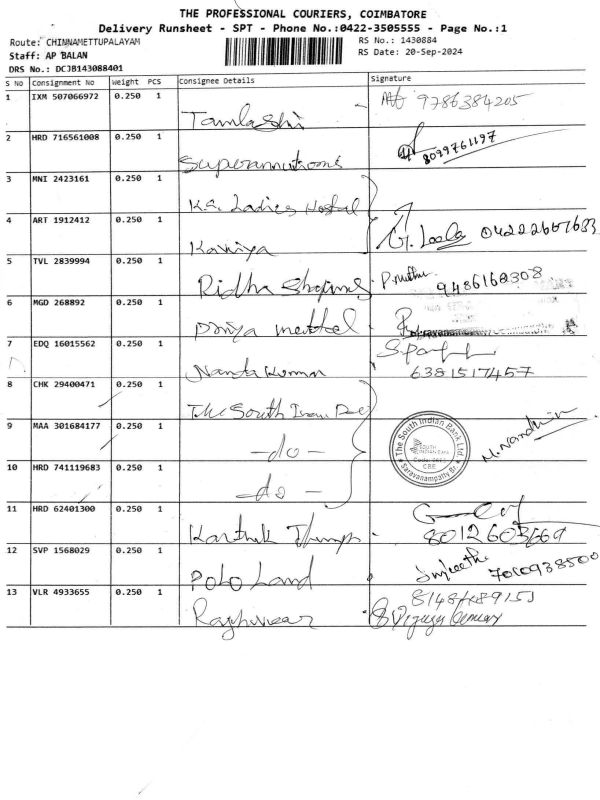 THE PROFESSIONAL COURIERS, COIMBATORE
Delivery Runsheet - SPT - Phone No.:0422-3505555 - Page No.:1
Route: CHINNAMETTUPALAYAM
RS No.: 1430884
Staff: AP BALAN
RS Date: 20-Sep-2024
DRS No.: DCJB143088401
S No Consignment No Weight PCS Consignee Details Signature
1 IXM 507066972 0.250 1 9786384205
Tamlashi
2 HRD 716561008 0.250 1 8099761197
3 MNI 2423161 0.250 1
K.S. Ladies Hostel
4 ART 1912412 0.250 1 G. Leela
Kaviya
5 TVL 2839994 0.250 1 P.muthu
Ridha 9486168308
6 MGD 268892 0.250 1
Priya
7 EDQ 16015562 0.250 1
Nanta Kumar 6381517457
8 CHK 29400471 0.250 1
The South
9 MAA 301684177 0.250 1 The South Indian Bank Ltd. Saravanampatty Br. CBE
-do- M. Nandhin
10 HRD 741119683 0.250 1
-do-
11 HRD 62401300 0.250 1
Karthik 8012603669
12 SVP 1568029 0.250 1
Polo Land 7010938500
13 VLR 4933655 0.250 1